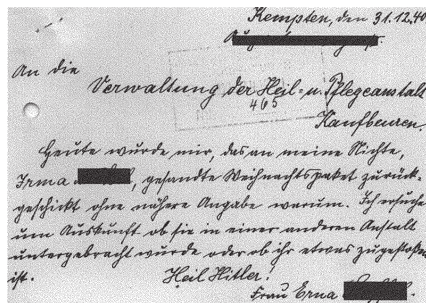 Kempten, den 31.12.40
An die
Verwaltung der Heil- u. Pflegeanstalt
465
Kaufbeuren.
Heute wurde mir, das an meine Nichte,
Irma, gesandte Weihnachtspaket zurück-
geschickt ohne nähere Angabe warum. Ich ersuche
um Auskunft ob sie in einer anderen Anstalt
untergebracht wurde oder ob ihr etwas zugestoßen
ist. Heil Hitler!
Frau Erna